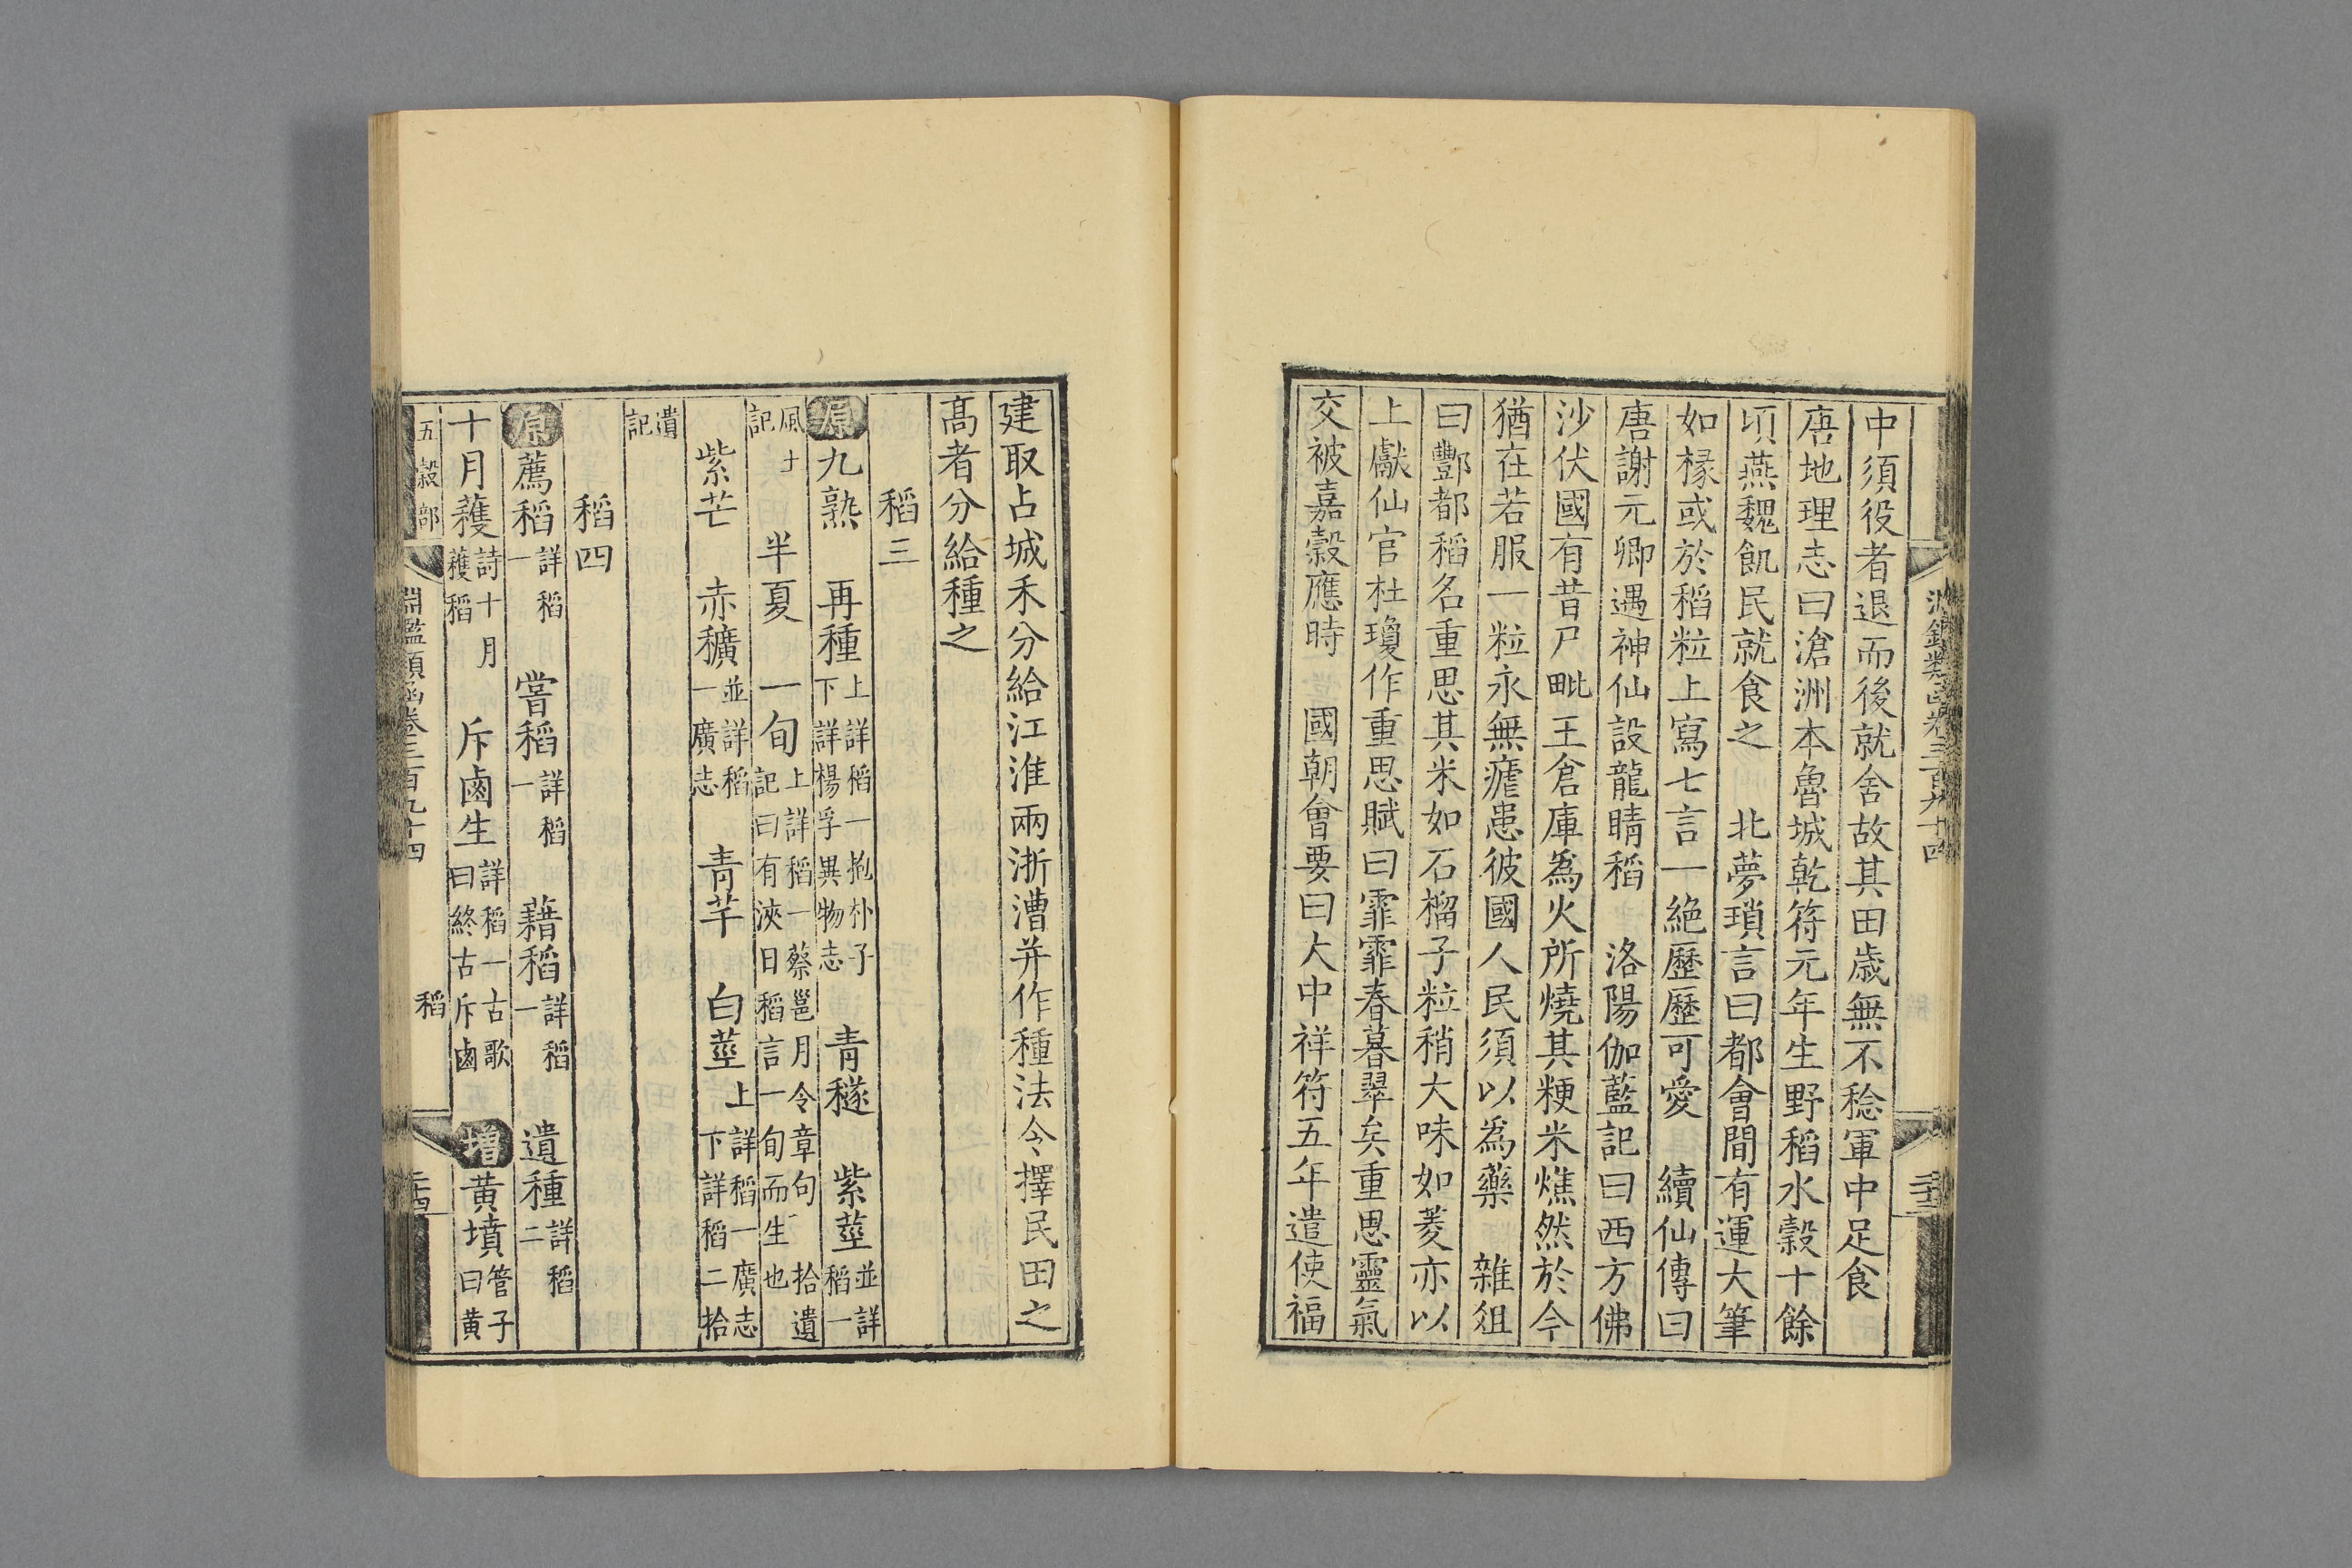 中須役者退而後就舍故其田歳無不稔軍中足食
唐地理志曰滄洲本魯城乾符元年生野稻水穀十餘
頃燕魏飢民就食之　北夢瑣言曰都會間有運大筆
如椽或於稻粒上寫七言一絶歷歷可愛　續仙傳曰
唐謝元卿遇神仙設龍睛稻　洛陽伽藍記曰西方佛
沙伏國有昔尸毗王倉庫爲火所燒其粳米燋然於今
猶在若服一粒永無瘧患彼國人民須以爲藥　雜俎
曰酆都稻名重思其米如石榴子粒稍大味如菱亦以
上獻仙官杜瓊作重思賦曰霏霏春暮翠矣重思靈氣
交被嘉穀應時　國朝會要曰大中祥符五年遣使福
建取占城禾分給江淮兩浙漕并作種法令擇民田之
高者分給種之
稻三
原九熟　再種上詳稻一抱朴子下詳楊孚異物志　青穟　紫莖並詳稻一
風土記　半夏　一旬上詳稻一蔡邕月令章句　拾遺記曰有浹日稻言一旬而生也
紫芒　赤穬並詳稻一廣志　青芋　白莖上詳稻一廣志下詳稻二拾
遺記
稻四
原薦稻詳稻一　嘗稻詳稻一　藉稻詳稻一　遺種詳稻二
十月穫詩十月穫稻　斥鹵生詳稻一古歌曰終古斥鹵　增黄墳管子曰黄
五穀部　淵鑑類函卷三百九十四　稻